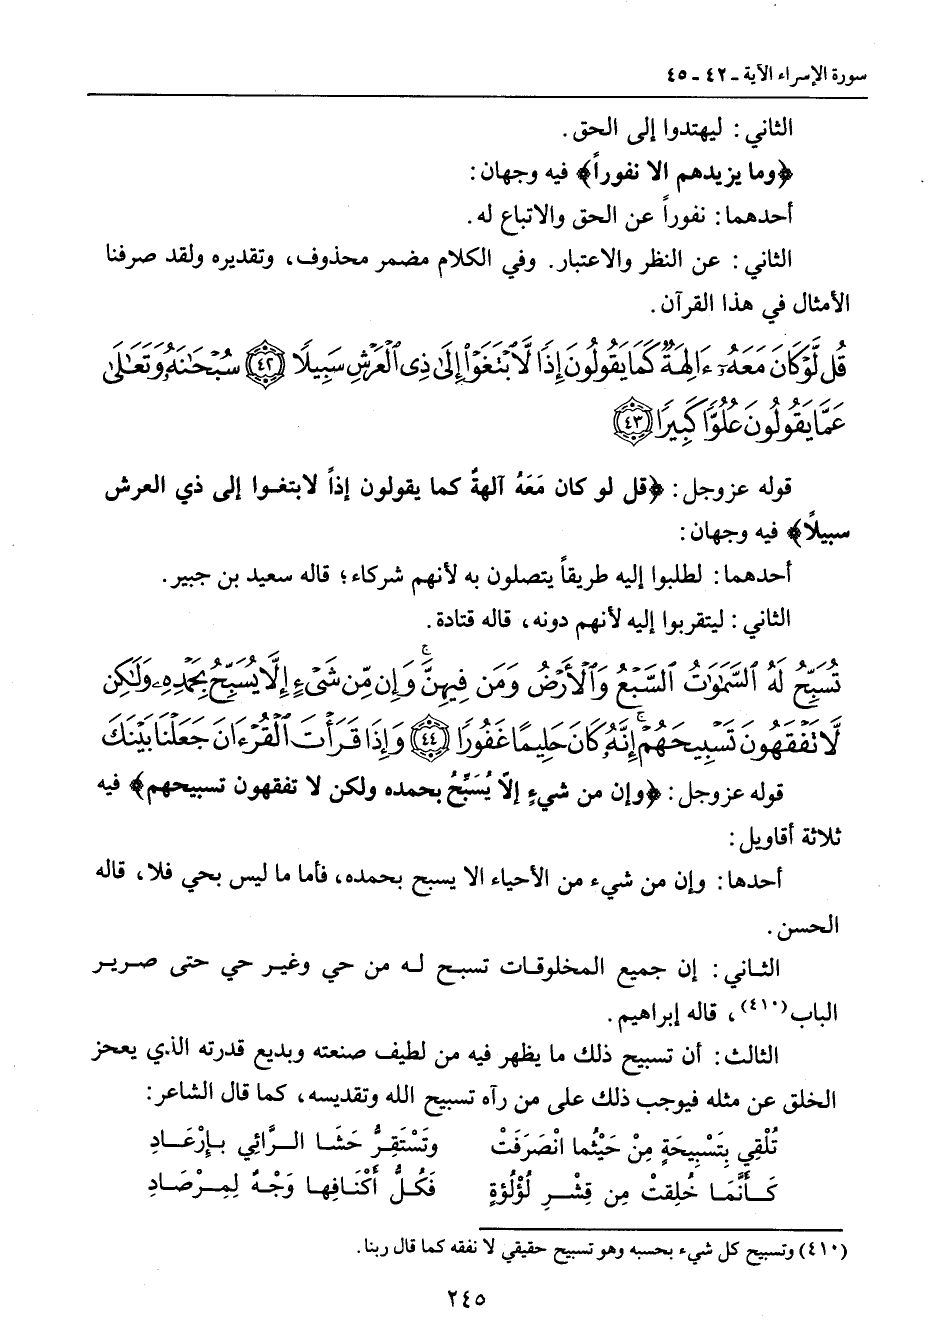 سورة الإسراء الآية ـ ٤٢ ـ ٤٥
الثاني: ليهتدوا إلى الحق.
﴿وما يزيدهم الا نفوراً﴾ فيه وجهان:
أحدهما: نفوراً عن الحق والاتباع له.
الثاني: عن النظر والاعتبار. وفي الكلام مضمر محذوف، وتقديره ولقد صرفنا
الأمثال في هذا القرآن.
قُل لَّوْ كَانَ مَعَهُۥٓ ءَالِهَةٌ كَمَا يَقُولُونَ إِذًا لَّٱبْتَغَوْا۟ إِلَىٰ ذِى ٱلْعَرْشِ سَبِيلًا ﴿٤٢﴾ سُبْحَٰنَهُۥ وَتَعَٰلَىٰ
عَمَّا يَقُولُونَ عُلُوًّا كَبِيرًا ﴿٤٣﴾
قوله عز وجل: ﴿قل لو كان مَعَهُ آلهةٌ كما يقولون إذاً لابتغوا إلى ذي العرش
سبيلاً﴾ فيه وجهان:
أحدهما: لطلبوا إليه طريقاً يتصلون به لأنهم شركاء؛ قاله سعيد بن جبير.
الثاني: ليتقربوا إليه لأنهم دونه، قاله قتادة.
تُسَبِّحُ لَهُ ٱلسَّمَٰوَٰتُ ٱلسَّبْعُ وَٱلْأَرْضُ وَمَن فِيهِنَّ ۚ وَإِن مِّن شَىْءٍ إِلَّا يُسَبِّحُ بِحَمْدِهِۦ وَلَٰكِن
لَّا تَفْقَهُونَ تَسْبِيحَهُمْ ۗ إِنَّهُۥ كَانَ حَلِيمًا غَفُورًا ﴿٤٤﴾ وَإِذَا قَرَأْتَ ٱلْقُرْءَانَ جَعَلْنَا بَيْنَكَ
قوله عز وجل: ﴿وإن من شيءٍ إلاّ يُسَبِّحُ بحمده ولكن لا تفقهون تسبيحهم﴾ فيه
ثلاثة أقاويل:
أحدها: وإن من شيء من الأحياء الا يسبح بحمده، فأما ما ليس بحي فلا، قاله
الحسن.
الثاني: إن جميع المخلوقات تسبح له من حي وغير حي حتى صرير
الباب(٤١٠)، قاله إبراهيم.
الثالث: أن تسبيح ذلك ما يظهر فيه من لطيف صنعته وبديع قدرته الذي يعحز
الخلق عن مثله فيوجب ذلك على من رآه تسبيح الله وتقديسه، كما قال الشاعر:
تُلْقِي بِتَسْبِيحَةٍ مِنْ حَيْثُما انْصَرَفَتْ وتَسْتَقِرُّ حَشَا الرَّائِي بإِرْعَادِ
كَأَنَّمَا خُلِقتْ مِن قِشْرِ لُؤْلُؤةٍ فَكُلُّ أَكْنَافِها وَجْهٌ لِمِرْصَادِ
(٤١٠) وتسبيح كل شيء بحسبه وهو تسبيح حقيقي لا نفقه كما قال ربنا.
٢٤٥